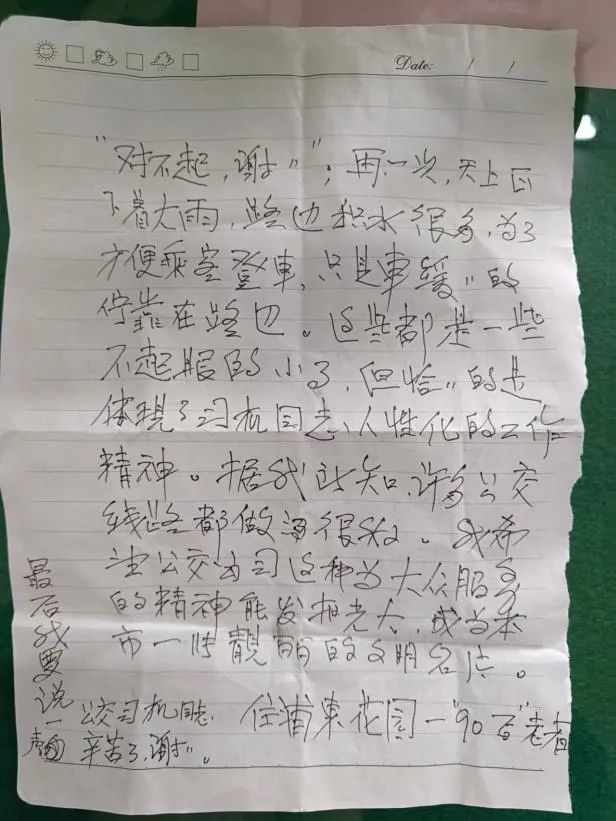 Date: / /
"对不起，谢〃"；再一次，天上曰
下着大雨，路边积水很多，为了
方便乘客登車，只見車缓〃的
停靠在路边。这些都是一些
不起眼的小了，但恰〃的是
体現了司机同志人性化的工作
精神。据我所知，许多公交
线路都做得很好。我希
望公交公司这种为大众服务
的精神能发扬光大，成为本
市一 靚丽的文明名片。
最后我要说一声
公交司机同志
辛苦了，谢〃。
住浦東花园一"90 "老者